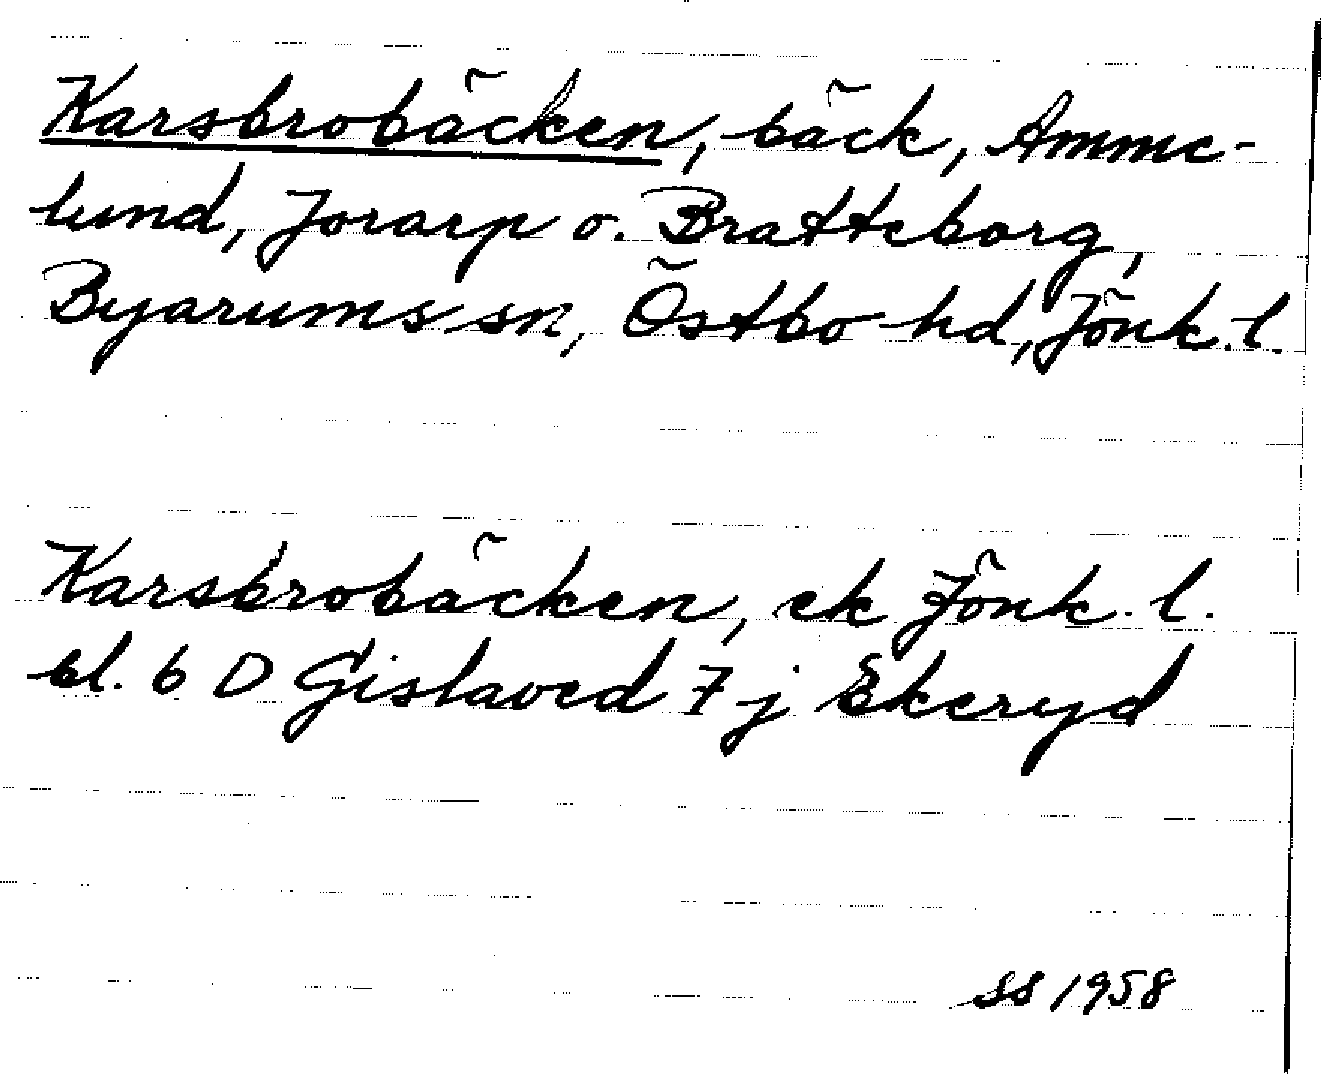 Karsbrobäcken, bäck, Amme-
lund, Jorarp o. Bratteborg,
Byarums sn, Östbo hd, Jönk. l.
Karsbrobäcken, ek Jönk. l.
bl. 6 D Gislaved 7 j Ekeryd
SS 1958